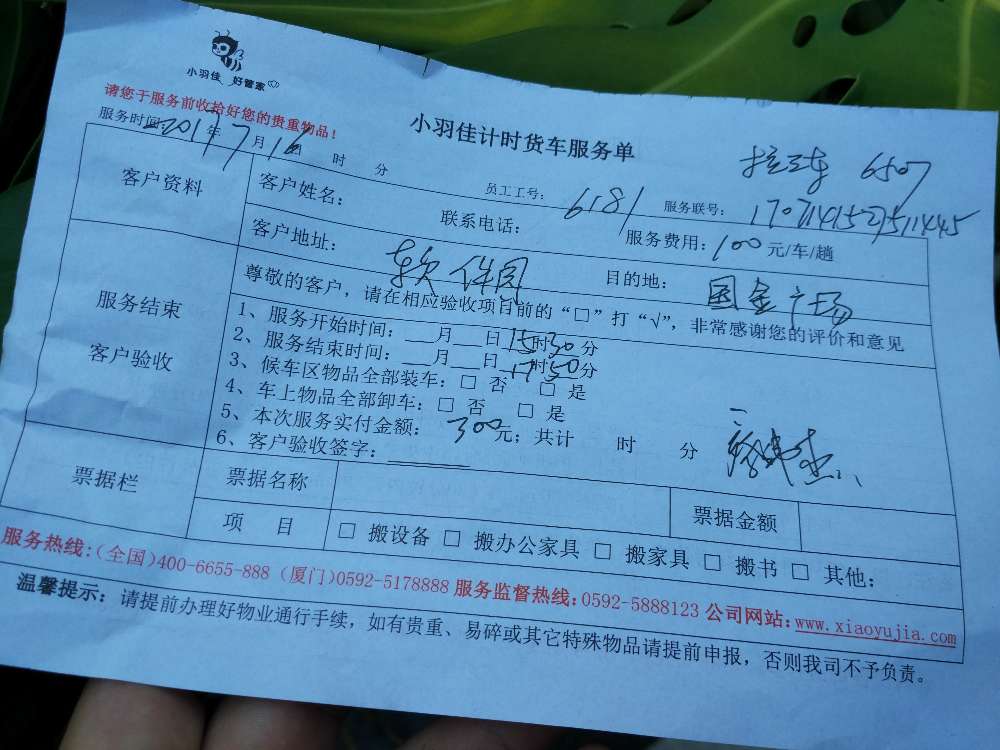 小羽佳 好管家
请您于服务前收拾好您的贵重物品！
小羽佳计时货车服务单
服务时间：2017年7月16日 时 分
员工工号：6181
6507
服务联号：
客户资料
客户姓名：
联系电话：
服务费用：100元/车/趟
客户地址：软件园
目的地：国金广场
服务结束
客户验收
尊敬的客户，请在相应验收项目前的“□”打“√”，非常感谢您的评价和意见
1、服务开始时间：__月__日15时30分
2、服务结束时间：__月__日17时50分
3、候车区物品全部装车：□ 否 □ 是
4、车上物品全部卸车：□ 否 □ 是
5、本次服务实付金额：300元；共计 时 分
6、客户验收签字：
票据栏
票据名称
票据金额
项 目
□ 搬设备 □ 搬办公家具 □ 搬家具 □ 搬书 □ 其他：
服务热线:(全国)400-6655-888 (厦门)0592-5178888 服务监督热线:0592-5888123 公司网站:www.xiaoyujia.com
温馨提示：请提前办理好物业通行手续，如有贵重、易碎或其它特殊物品请提前申报，否则我司不予负责。